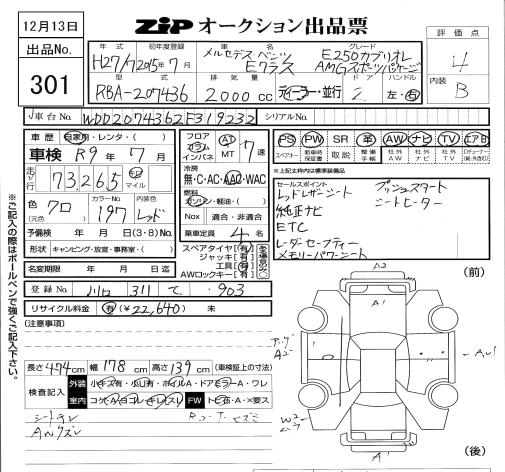 12月13日
ZIP オークション出品票
出品No.
301
年式
H27/7
初年度登録
2015年7月
車名
メルセデス・ベンツ
Eクラス
グレード
E250カブリオレ
AMGスポーツパッケージ
評価点
4
内装
B
型式
RBA-207436
排気量
2000cc
ドア
2
ハンドル
左・右
ディーラー・並行
車台No.
WDD2074362F319232
シリアルNo.
車歴 自家用・レンタ・( )
車検 R9年7月
走行
73,265
km
マイル
色
クロ
(元色)
カラーNo.
197
内装色
レッド
予備検 年 月 日 (3・8)No.
形状 キャンピング・放送・事務室・( )
名変期限 年 月 日迄
登録No. 川口 311 て 903
リサイクル料金 有(¥22,640) 未
フロア
コラム
インパネ
AT
MT
7速
冷房
無・C・AC・AAC・WAC
燃料
ガソリン・軽油・( )
Nox 適合・非適合
乗車定員 4名
スペアタイヤ(有)
ジャッキ(有)
工具(有)
AWロックキー(有)
ある場合のみ〇
PS PW SR 革 AW ナビ TV エアB
スペアキー
新車時保証書
取説
整備手帳
社外AW
社外ナビ
社外TV
※上記太枠内は標準装備品
セールスポイント
レッドレザーシート
プッシュスタート
純正ナビ
シートヒーター
ETC
レーダーセーフティー
メモリーパワーシート
(前)
A2
A1
(後)
A1
(注意事項)
長さ 474cm 幅 178cm 高さ 139cm (車検証上の寸法)
検査記入
外装
小キズ有・小凹有・ホイルA・ドアミラーA・ワレ
室内
コゲ・A・ヨゴレ・キレ・スレ
FW
トビ石・A・×要ス
シートスレ
※ご記入の際はボールペンで強くご記入下さい。